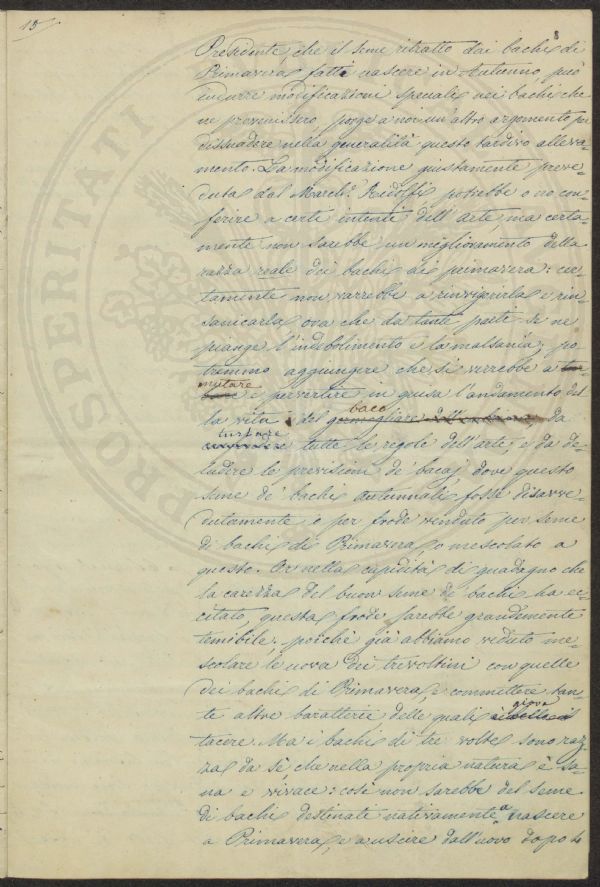 15
8
Presidente, che il seme ritratto dai bachi di
Primavera fatti nascere in Autunno, può
indurre modificazioni speciali nei bachi che
ne provenissero, porge a noi un altro argomento per
dissuadere nella generalità questo tardivo alleva-
mento. La modificazione giustamente preve-
duta dal March.e Ridolfi potrebbe o no con-
ferire a certi intenti dell'arte, ma certa-
mente non sarebbe un miglioramento della
razza reale dei bachi di primavera: cer-
tamente non varrebbe a rinvigorirla e rin-
sanicarla ora che da tante parte se ne
piange l'indebolimento e la malsania; po
tremmo aggiungere che si verrebbe a
mutare e pervertire in guisa l'andamento del
la vita del baco da
turbare tutte le regole dell'arte, e da de-
ludere le previsioni de' bacaj, dove questo
seme de' bachi autunnali fosse disavve-
dutamente o per frode venduto per seme
di bachi di Primavera, o mescolato a
questo. Or nella cupidità di guadagno che
la carezza del buon seme de' bachi ha ec-
citato, questa frode sarebbe grandemente
temibile; poichè già abbiamo veduto me-
scolare le uova dei trevoltini con quelle
dei bachi di Primavera, e commettere tan-
te altre baratterie, delle quali giova
tacere. Ma i bachi di tre volte sono raz-
za da sè, che nella propria natura è sa-
na e vivace: così non sarebbe del seme
di bachi destinati nativamente a nascere
a Primavera, e a uscire dall'uovo dopo le
PROSPERITATI